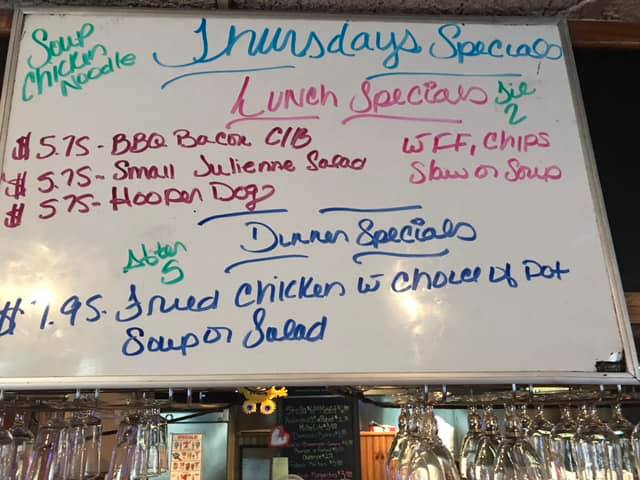 Soup
Chicken
Noodle
Thursdays Specials
Lunch Specials
2
$5.75 - BBQ Bacon C/B
$5.75 - Small Julienne Salad
$5.75 - Hooper Dog
w FF, Chips
Slaw or Soup
Dinner Specials
After
5
Fried Chicken w Choice of Pot
Soup or Salad